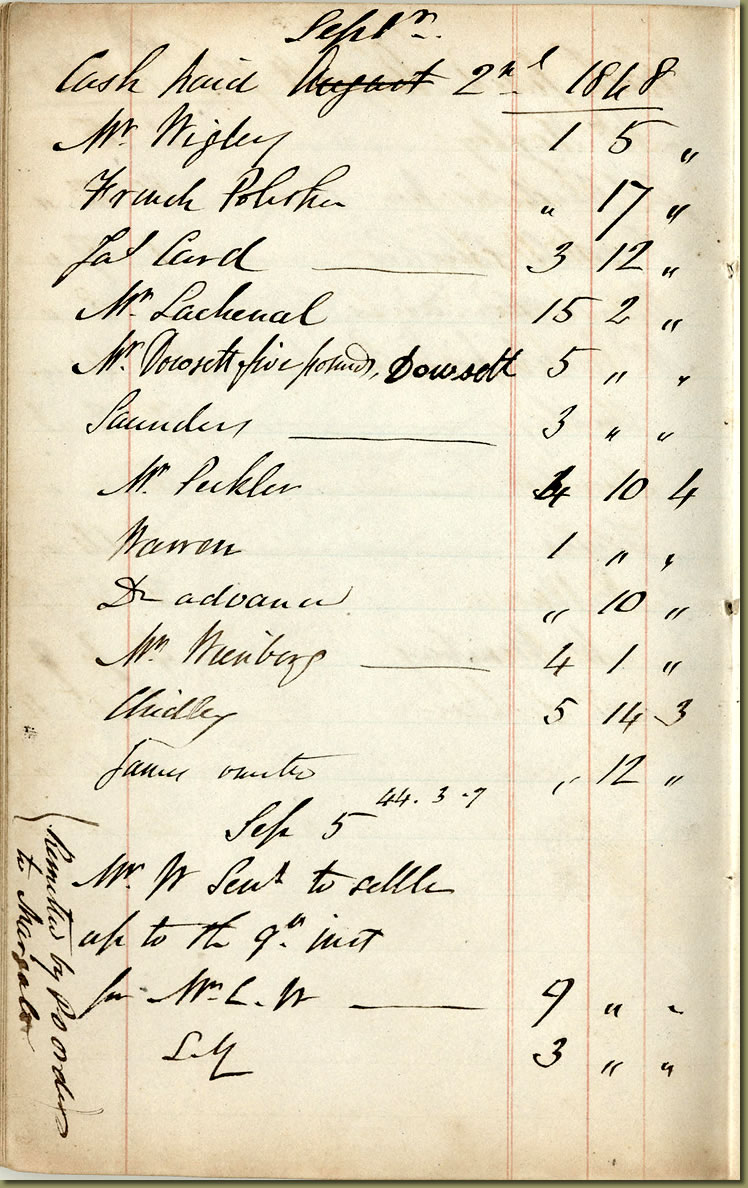 Septr.
Cash paid August 2nd 1848
Mr Wigley 1 5 "
French Polisher " 17 "
Jas Card 3 12 "
Mr Lachenal 15 2 "
Mr Dowsett five pounds, Dowsett 5 " "
Saunders 3 " "
Mr Peckler 4 10 4
Warren 1 " "
Do advance " 10 "
Mr Weinberg 4 1 "
Chidley 5 14 3
James " 12 "
44. 3. 7
Sep 5
Mr. W Sent to settle
up to the 9th inst
for Mr. C. W 9 " "
3 " "
Remitted by P O orders
to Margate